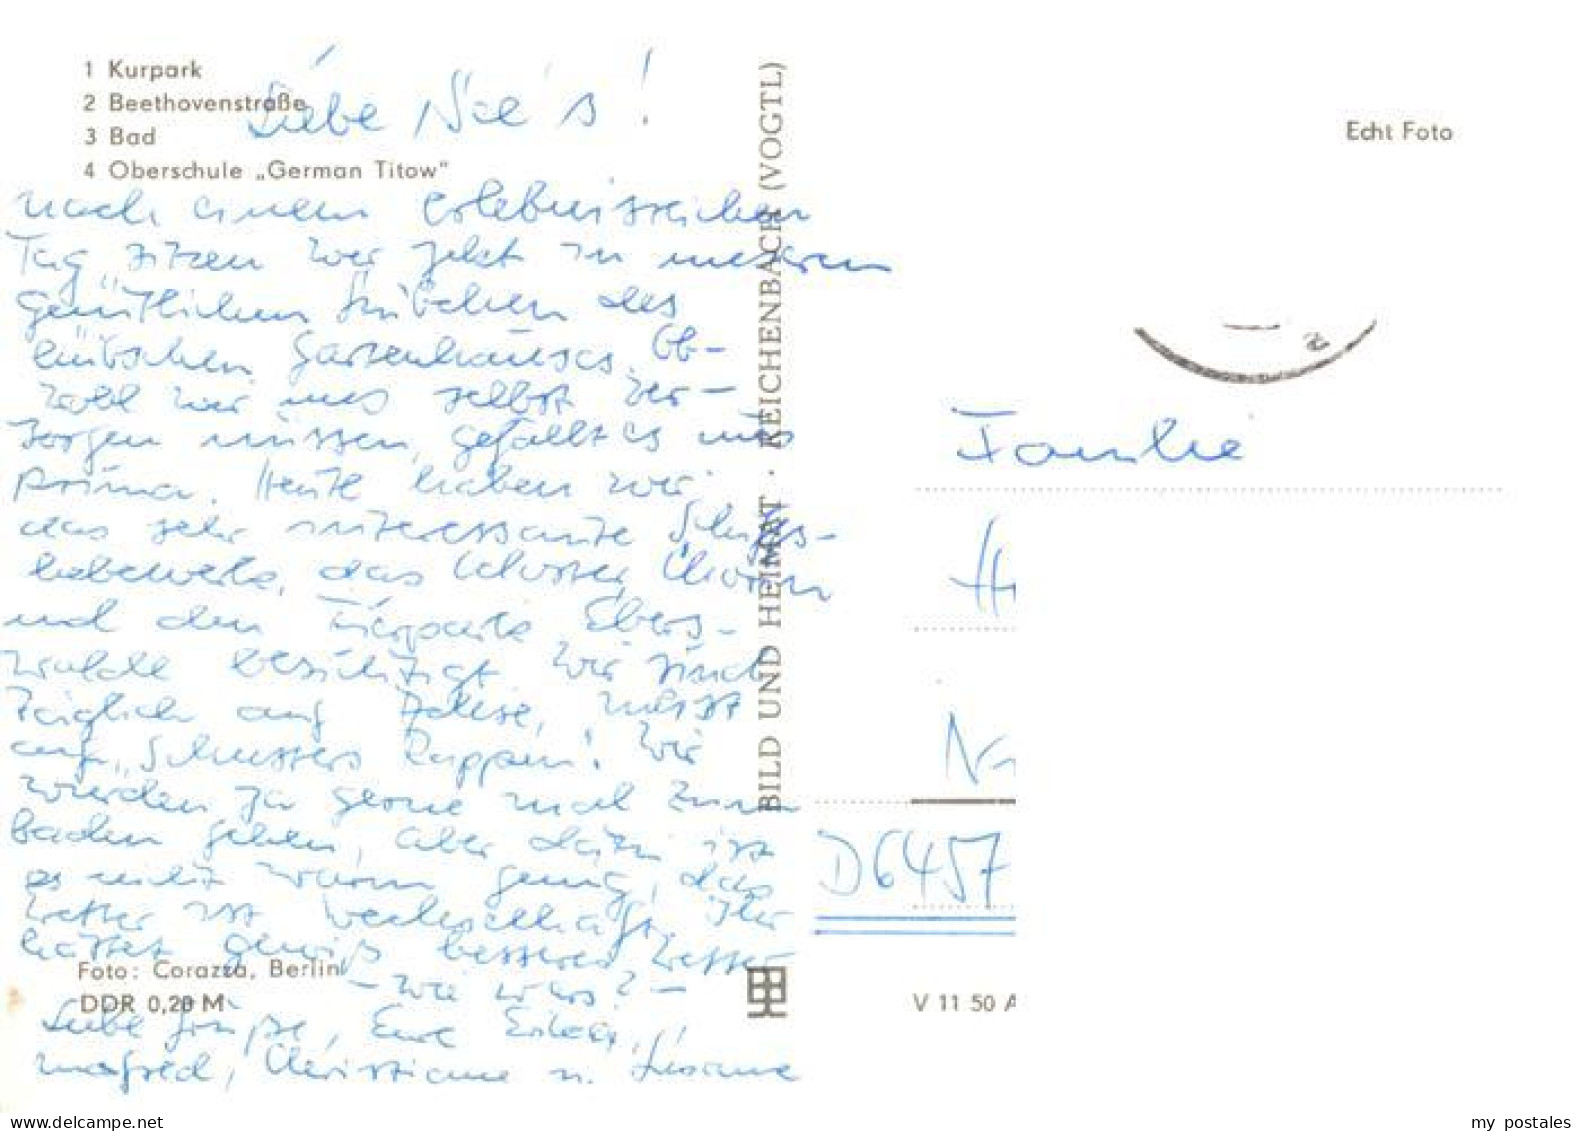 1 Kurpark
2 Beethovenstraße
3 Bad
4 Oberschule „German Titow"
Liebe
nach einem erlebnisreichen
Tag sitzen wir jetzt in unserem
gemütlichen Stübchen des
hübschen Gartenhauses. Ob-
wohl wir uns selbst ver-
sorgen müssen, gefällt es uns
prima. Heute haben wir
das sehr interessante Schiffs-
hebewerk, das Kloster Chorin
und den Tierpark Ebers-
walde besichtigt. Wir sind
täglich auf Achse, meist
auf „Schusters Rappen". Wir
würden ja gerne mal zum
baden gehen, aber dazu ist
es nicht warm genug, das
Wetter ist wechselhaft. Ihr
hattet gewiß besseres Wetter
- wie war's? -
Liebe Grüße, Eure
Manfred, Christiane u. Susanne
Foto: Corazza, Berlin
DDR 0,20 M
BILD UND HEIMAT · REICHENBACH (VOGTL)
Echt Foto
Familie
D 6457
V 11 50 A
my postales